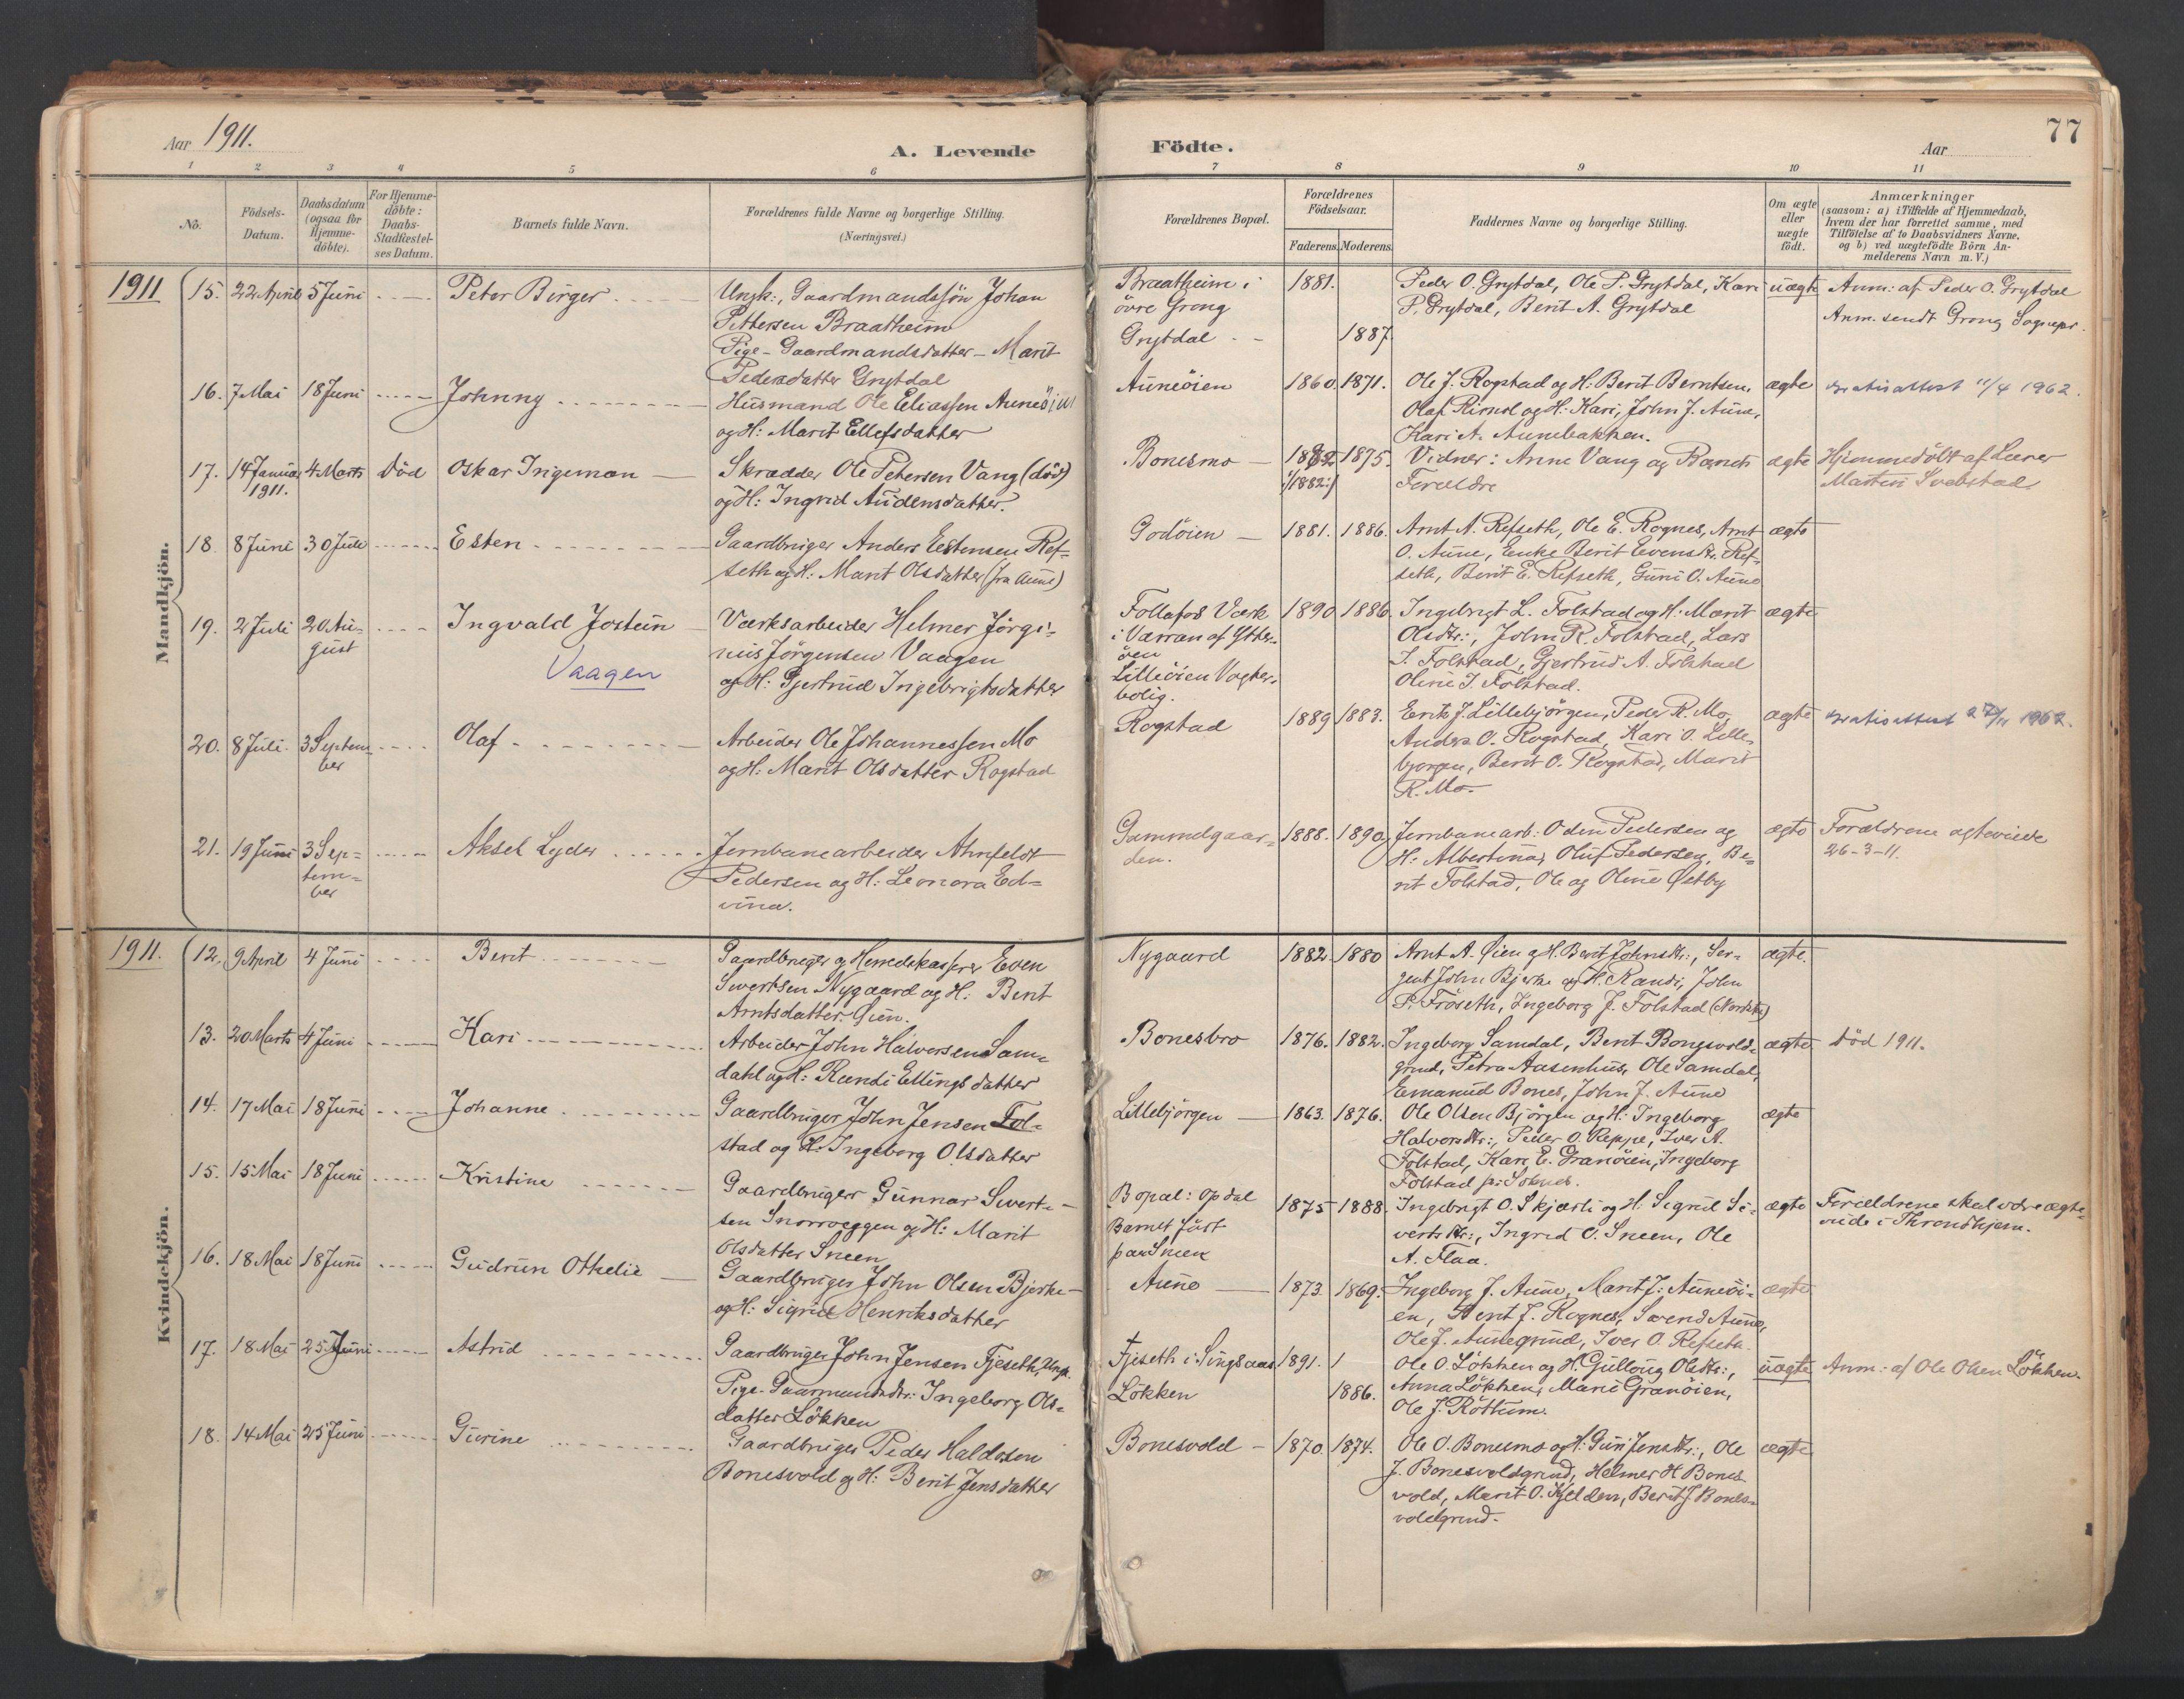 Aar 1911.
A. Levende
Födte.
Aar
77
1 2 3 4 5 6 7 8 9 10 11
No.
Födsels-
Datum.
Daabsdatum
(ogsaa for
Hjemme-
döbte).
For Hjemme-
döbte:
Daabs-
Stadfæstel-
ses Datum.
Barnets fulde Navn.
Forældrenes fulde Navne og borgerlige Stilling.
(Næringsvei.)
Forældrenes Bopæl.
Forældrenes
Födselsaar.
Faderens. Moderens.
Faddernes Navne og borgerlige Stilling.
Om ægte
eller
uægte
födt.
Anmærkninger
(saasom: a) i Tilfælde af Hjemmedaab,
hvem der har forrettet samme, med
Tilföielse af to Daabsvidners Navne,
og b) ved uægtefödte Börn An-
melderens Navn m. V.)
Mandkjön.
1911
15. 22 April 5 Juni
Peter Birger
Ungk:, Gaardmandssön Johan
Pettersen Braatheim
Pige - Gaardmandsdatter - Marit
Pedersdatter Grytdal
Braatheim i
övre Grong
Grytdal
1881.
1887.
Peder O. Grytdal, Ole P. Grytdal, Kari
P. Grytdal, Berit A. Grytdal
uægte
Anm: af Peder O. Grytdal
Anm. sendt Grong Sognepr.
16. 7 Mai 18 Juni
Johnny
Husmand Ole Eliassen Aunöien
og H: Marit Ellefsdatter
Aunöien
1860. 1871.
Ole J. Rogstad og H: Berit Berntsen,
Olaf Rimol og H: Kari, John J. Aune,
Kari A. Aunebakken.
ægte
gratisattest 11/4 1962.
17. 14 Januar 4 Marts Död
1911.
Oskar Ingeman
Skrædder Ole Petersen Vang (död)
og H: Ingrid Audensdatter.
Bonesmo
1882 1875.
:/1882:/
Vidner: Anne Vang og Barnets
Forældre
ægte
Hjemmedöbt af Lærer
Morten Svebstad.
18. 8 Juni 30 Juli
Esten
Gaardbruger Anders Estensen Ref-
seth og H: Marit Olsdatter (fra Aune)
Godöien
1881. 1886.
Arnt A. Refseth, Ole E. Rognes, Arnt
O. Aune, Enke Berit Evensdtr. Ref-
seth, Berit E. Refseth, Guri O. Aune
ægte
19. 2 Juli 20 Au-
gust
Ingvald Jostein
Vaagen
Værksarbeider Helmer Jörgi-
nus Jörgensen Vaagen
og H: Gjertrud Ingebrigtsdatter
Follafos Værk
i Værran af Ytter-
öen
Lillöien Vogter-
bolig.
1890 1886.
Ingebrigt L. Folstad og H: Marit
Olsdtr:, John R. Folstad, Lars
I. Folstad, Gjertrud A. Folstad
Oline I. Folstad.
ægte
20. 8 Juli. 3 Septem-
ber
Olaf
Arbeider Ole Johannessen Mo
og H: Marit Olsdatter Rogstad
Rogstad
1889 1883.
Erik J. Lillebjörgen, Peder R. Mo,
Anders O. Rogstad, Kari O. Lille-
bjorgen, Berit O. Rogstad, Marit
R. Mo.
ægte
gratisattest 1962.
21. 19 Juni 3 Sep-
tem-
ber
Aksel Lyder
Jernbanearbeider Ahnfeldt
Pedersen og H: Leonora Ed-
vina.
Gammelgaar-
den.
1888. 1890
Jernbanearb: Oden Pedersen og
H: Albertina, Oluf Pedersen, Be-
rit Folstad, Ole og Oline Østby
ægte
Forældrene ægteviede
26-3-11.
Kvindekjön.
1911.
12. 9 April 4 Juni
Berit
Gaardbruger og Herredskasserer Even
Sivertsen Nygaard og H: Berit
Arntsdatter Öien.
Nygaard
1882. 1880
Arnt A. Øien og H. Berit Johnsdtr:, Ser-
gent John Bjerke og H: Randi, John
P. Fröseth, Ingeborg J. Folstad
ægte.
13. 20 Marts 4 Juni
Kari
Arbeider John Halvorsen Sam-
dahl og H: Randi Ellingsdatter
Bonesbro
1876. 1882.
Ingeborg Samdal, Berit Bonesvold-
grind, Petra Aasenhus, Ole Samdal,
Emanuel Bones, John J. Aune
ægte
Död 1911.
14. 17 Mai 18 Juni
Johanne
Gaardbruger John Jensen Fol-
stad og H: Ingeborg Olsdatter
Lillebjörgen
1863. 1876.
Ole Olsen Bjørgen og H: Ingeborg
Halvorsdtr:, Peder O. Reppe, Iver A.
Folstad, Kari E. Granöien, Ingeborg
Folstad
ægte
15. 15 Mai 18 Juni
Kristine
Gaardbruger Gunnar Sivert-
sen Snorroeggen og H: Marit
Olsdatter Sneen
Bopæl: Opdal
Barnet född
paa Sneen
1875 1888.
Ingebrigt O. Skjærli og H: Sigrid Si-
vertsdtr:, Ingrid O. Sneen, Ole
A. Flaa.
ægte
Forældrene skal være ægte-
viede i Throndhjem.
16. 18 Mai 18 Juni
Gudrun Othelie
Gaardbruger John Olsen Bjerke
og H: Sigrid Henriksdatter
Aune
1873. 1869.
Ingeborg J. Aune, Marit J. Aunöi-
en, Berit J. Rognes, Svend Aune,
Ole J. Aunegrind, Iver O. Refseth
ægte
17. 18 Mai 25 Juni
Astrid
Gaardbruger John Jensen Fjeseth, Ungk.
Pige - Gaarmandsdtr: Ingeborg Ols-
datter Lökken
Fjeseth i Singsaas
Lökken
1891.
1886.
Ole O. Lökken og H: Gulloug Olsdtr:,
Anna Lökken, Marie Granöien,
Ole J. Röttum.
uægte
Anm: af Ole Olsen Lökken.
18. 14 Mai 25 Juni
Gurine
Gaardbruger Peder Haldosen
Bonesvold og H: Berit Jensdatter
Bonesvold
1870. 1874.
Ole O. Bonesmo og H: Guri Jensdtr:, Ole
J. Bonesvoldgrind, Helmer H Bones-
vold, Marit O. Kjelden, Berit J Bones-
voldgrind.
ægte